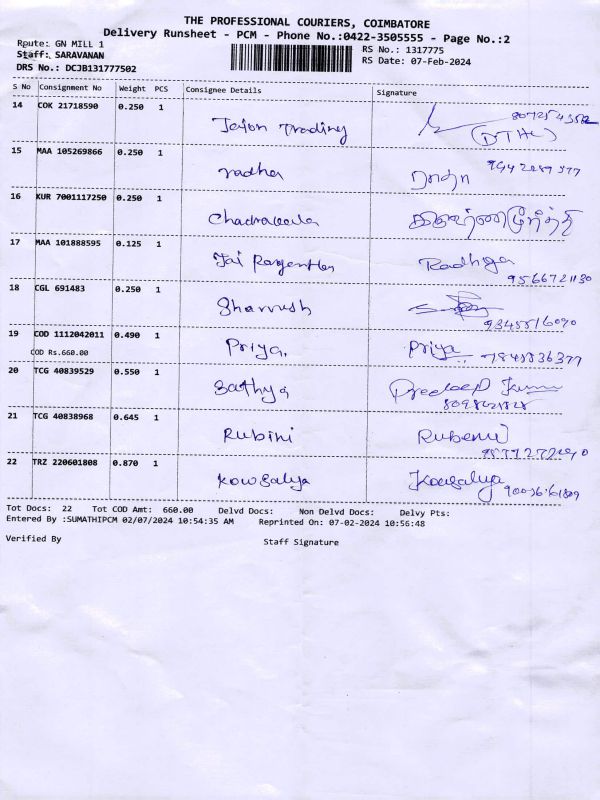 THE PROFESSIONAL COURIERS, COIMBATORE
Delivery Runsheet - PCM - Phone No.:0422-3505555 - Page No.:2
Rpute: GN MILL 1
RS No.: 1317775
Staff: SARAVANAN
RS Date: 07-Feb-2024
DRS No.: DCJB131777502
S No Consignment No Weight PCS Consignee Details Signature
14 COK 21718590 0.250 1 Trading (DTHC)
15 MAA 105269866 0.250 1 radha
16 KUR 7001117250 0.250 1
17 MAA 101888595 0.125 1 Jai Radhga
9566721130
18 CGL 691483 0.250 1
9345516090
19 COD 1112042011 0.490 1 Priya, Priya 7845836377
COD Rs.660.00
20 TCG 40839529 0.550 1 Sathya Pradeep Kumar
21 TCG 40838968 0.645 1 Rubini
22 TRZ 220601808 0.870 1 Kowsalya Kowsalya
Tot Docs: 22 Tot COD Amt: 660.00 Delvd Docs: Non Delvd Docs: Delvy Pts:
Entered By :SUMATHIPCM 02/07/2024 10:54:35 AM Reprinted On: 07-02-2024 10:56:48
Verified By Staff Signature